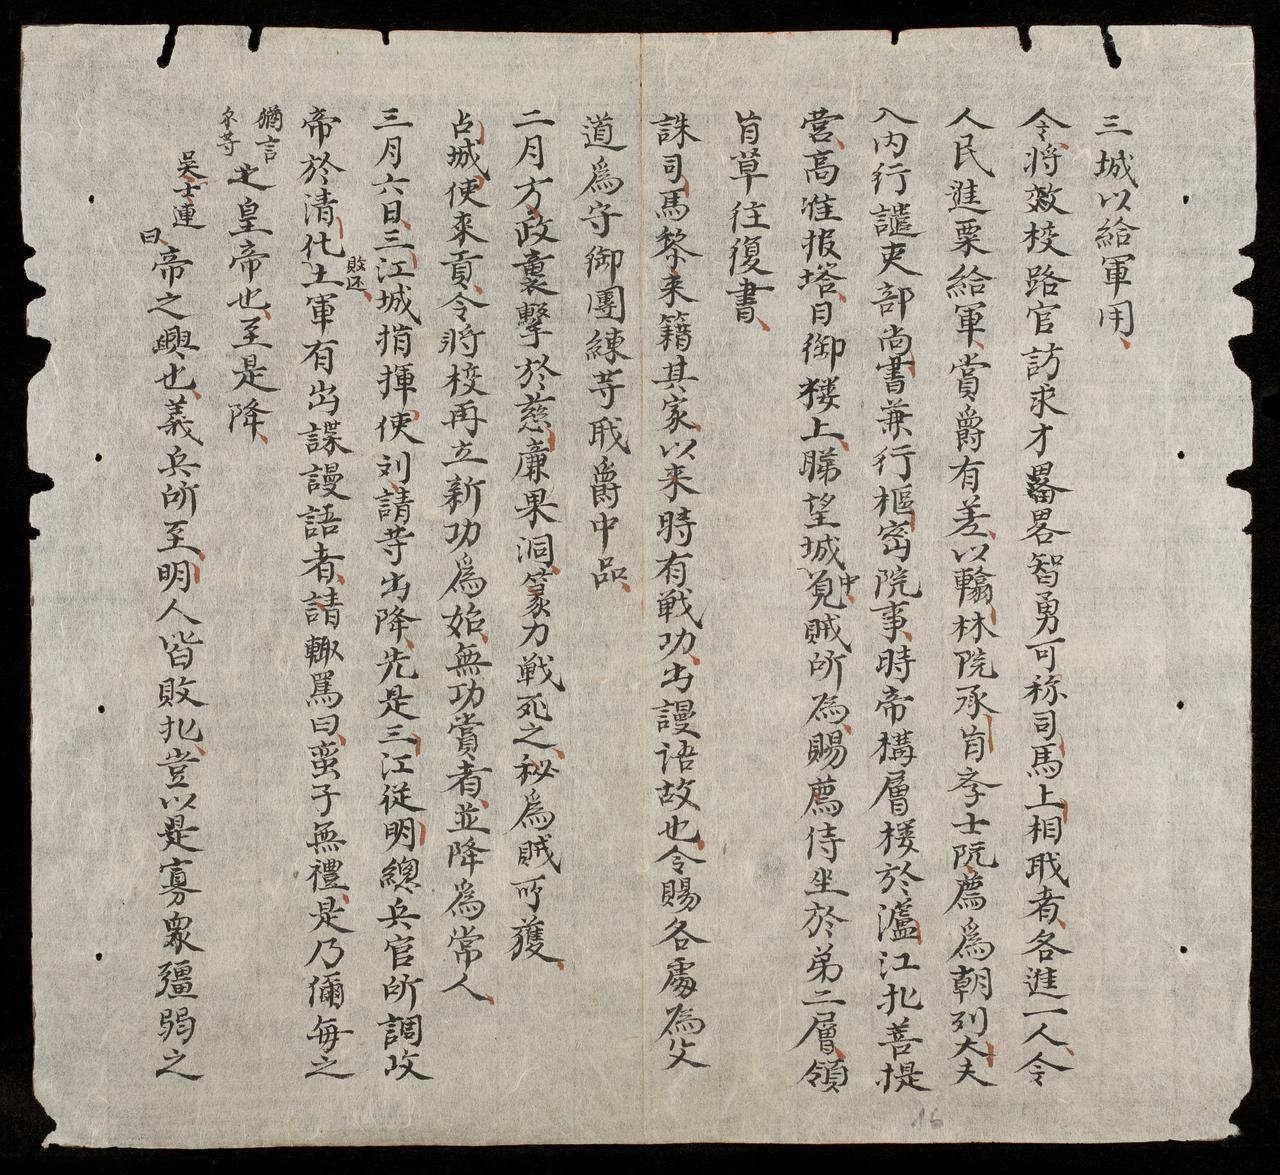 三城以給軍用
令將效校路官訪求才畧畧智勇可称司馬上相耺者各進一人令
人民進粟給軍賞爵有差以翰林院承旨孝士阮薦為朝列大夫
入内行譴吏部尚書兼行樞密院事時帝構層楼於瀘江北菩提
营高准报塔日御楼上睇望城中覓賊所為賜薦侍坐於第二層領
旨草往復書
誅司馬黎来籍其家以来時有戦功出謾语故也令賜各處為父
道爲守御團練等耺爵中品
二月方政襲擊於慈廉果洞篆力戦死之秘爲賊所獲
占城使来貢令將校再立新功爲始無功賞者並降為常人
三月六日三江城指揮使刘請等出降先是三江從明總兵官所調攻
帝於清化敗还土軍有出諜謾語者請輙罵曰蛮子無禮是乃儞每之
猶言尓等之皇帝也至是降
吴士連曰帝之興也義兵所至明人皆敗北豈以是寡衆彊弱之
16